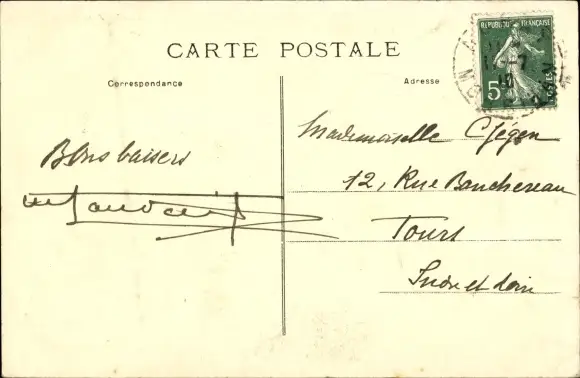 CARTE POSTALE
Correspondance
Adresse
REPUBLIQUE FRANÇAISE
5
POSTES
Bons baisers
Mademoiselle
12, Rue
Tours
Indre et Loire